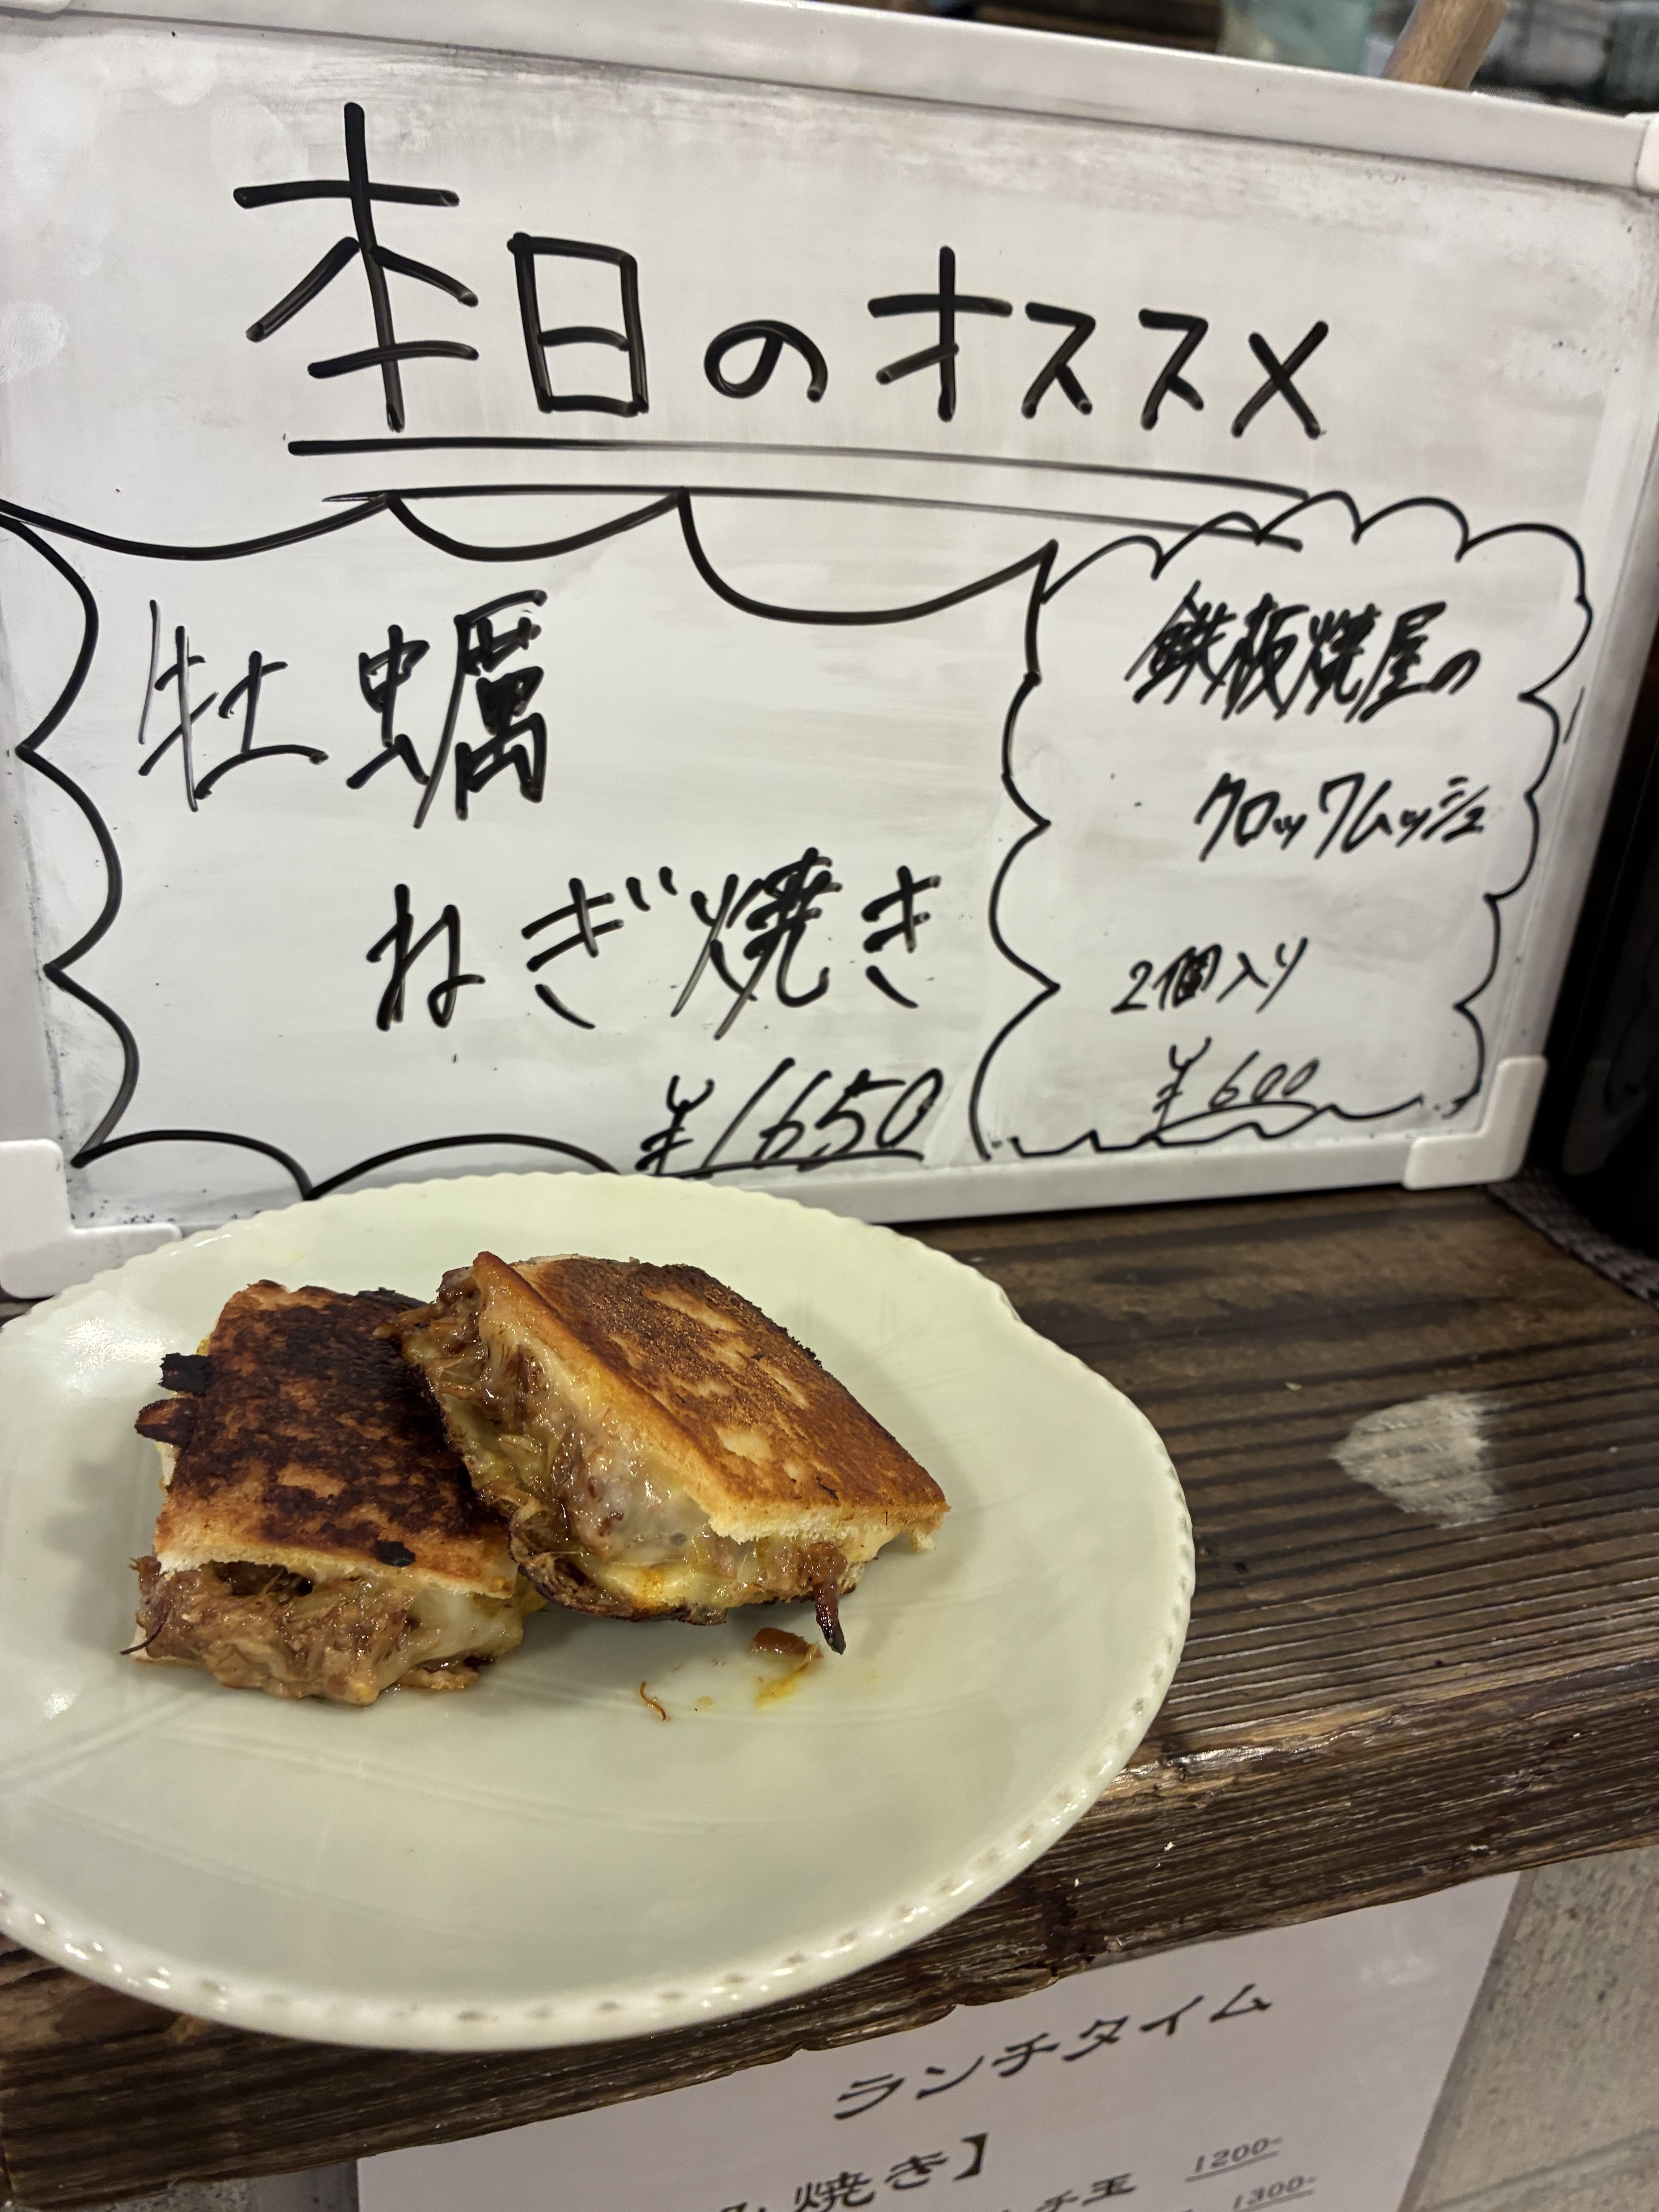 本日のオススメ
牡蠣
ねぎ焼き
¥1650
鉄板焼屋の
クロックムッシュ
2個入り
¥600
ランチタイム
焼き】
チ玉 1200-
1300-